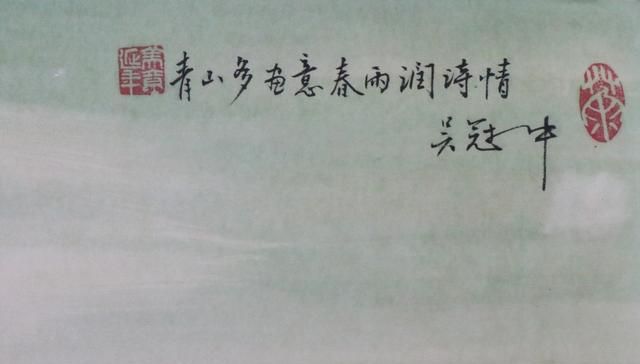 青山多画意春雨润诗情
吴冠中